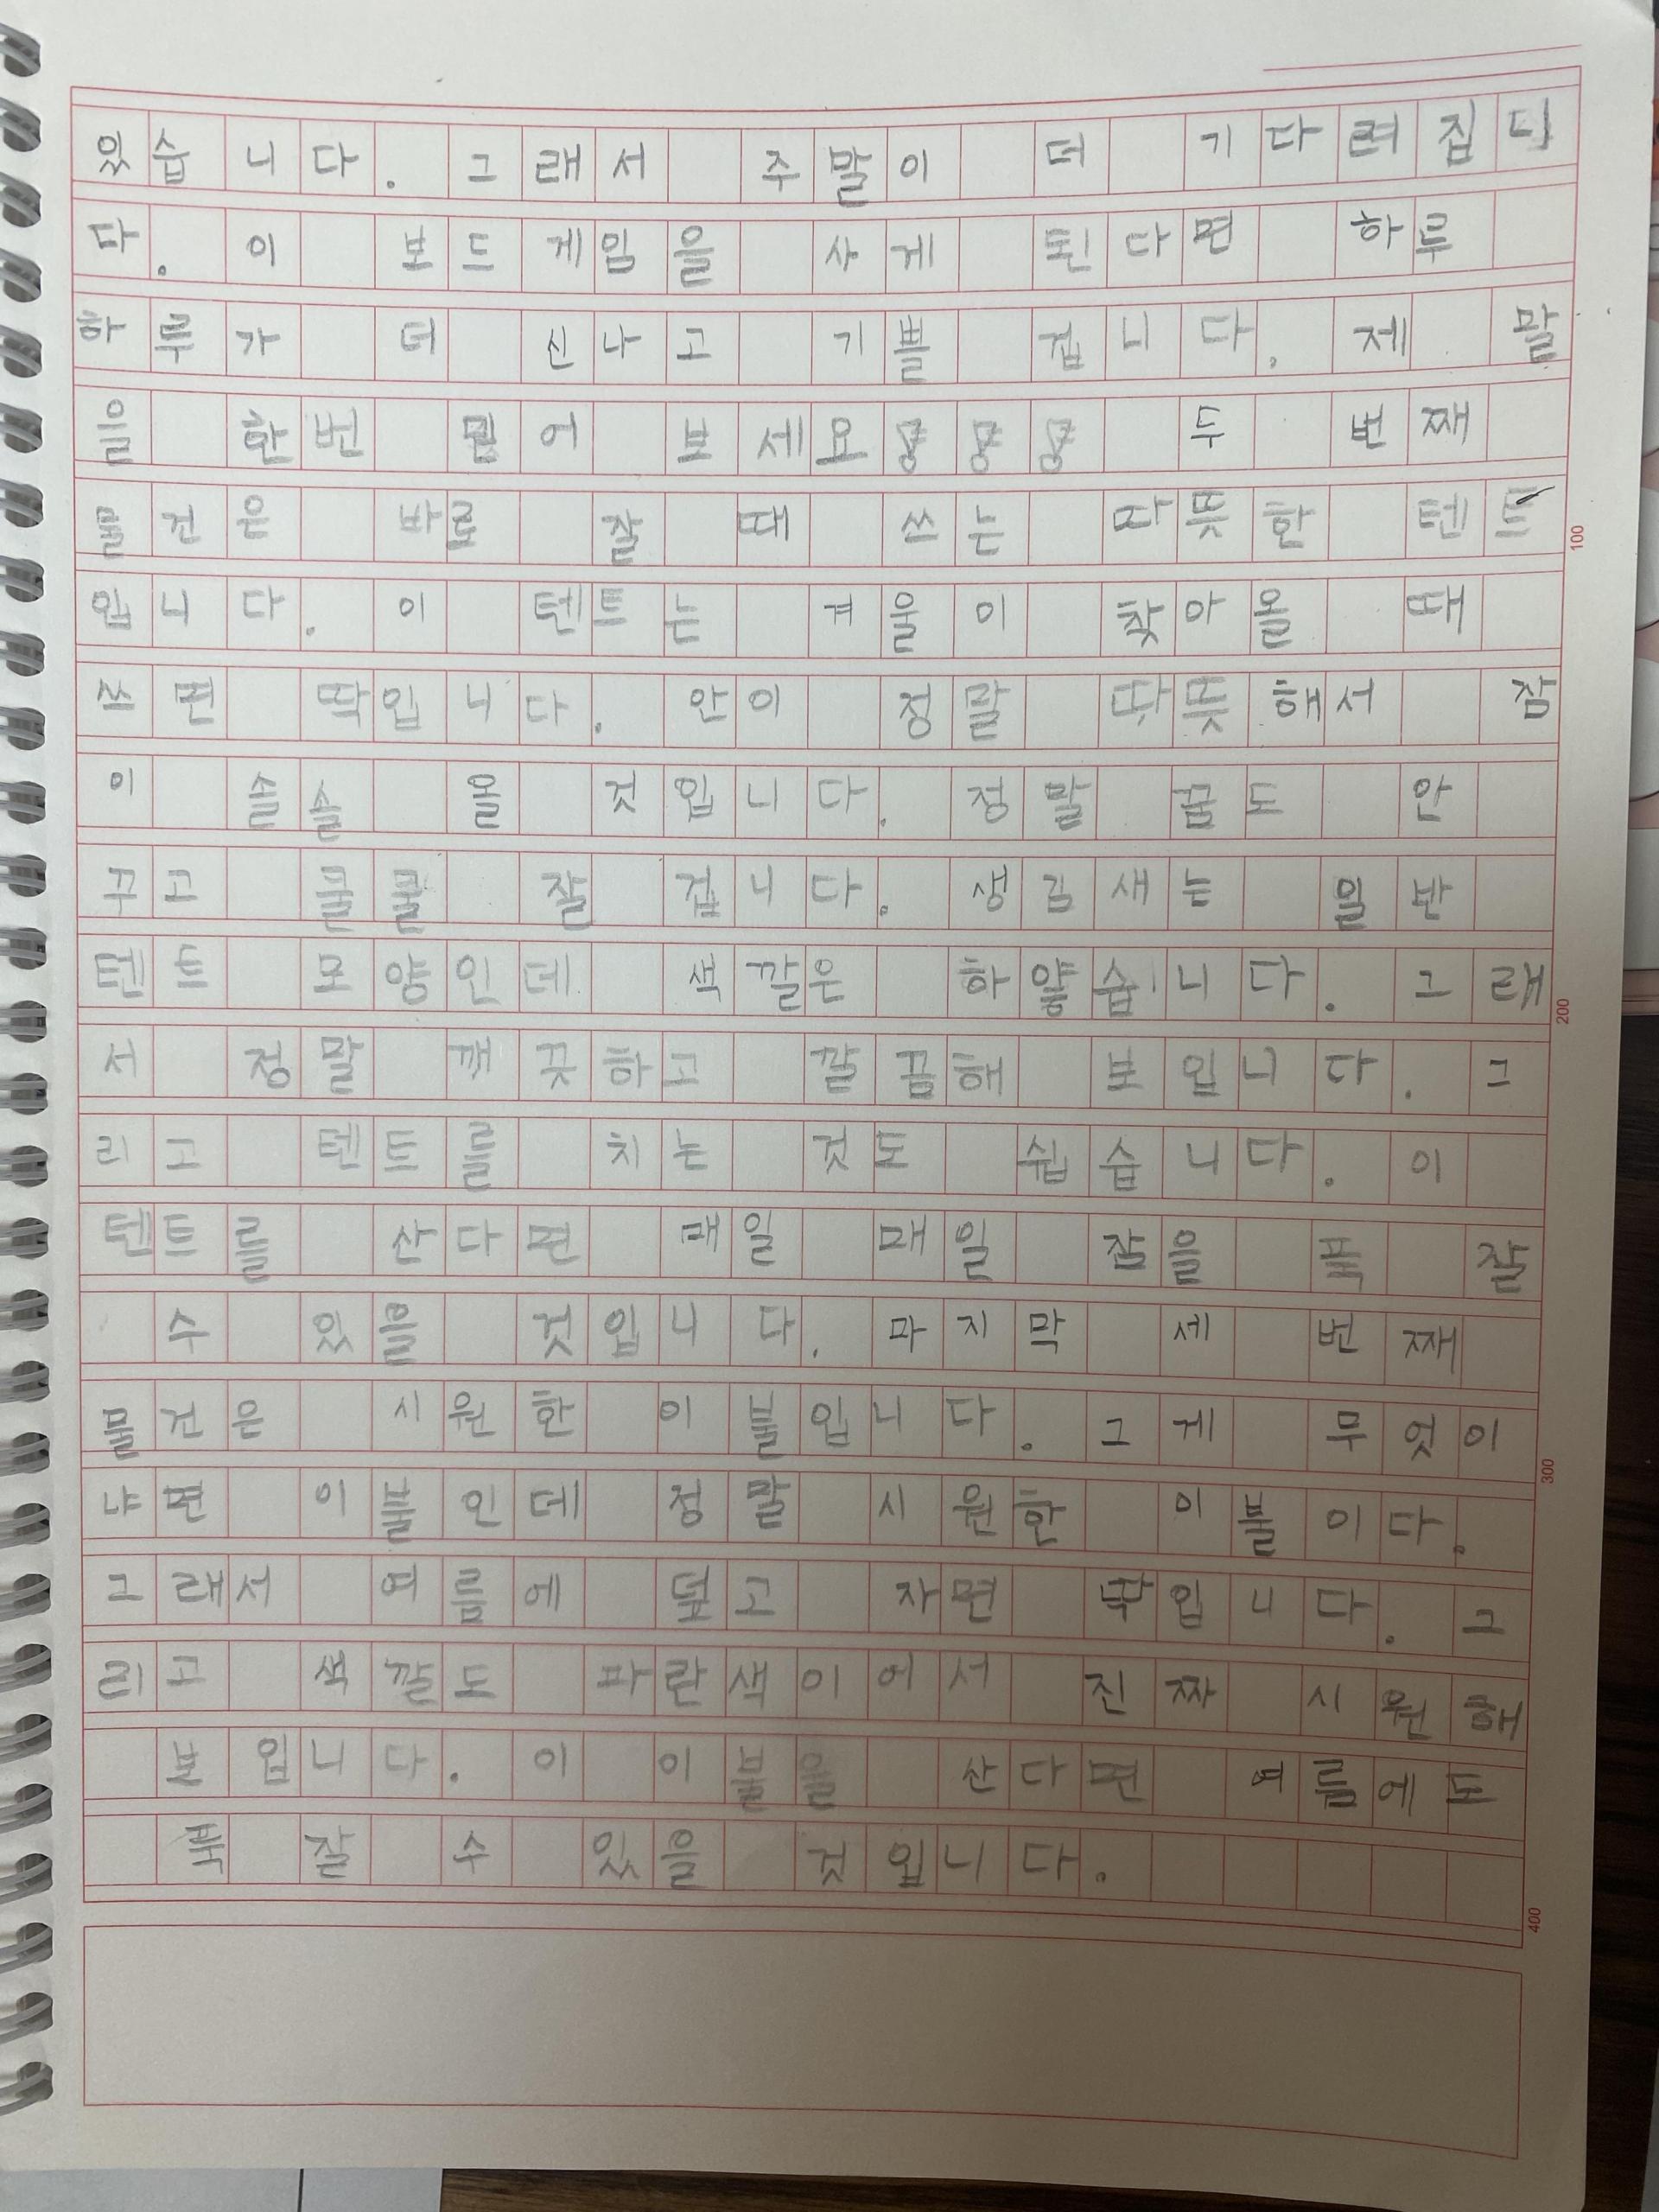 있습니다. 그래서 주말이 더 기다려집니
다. 이 보드게임을 사게 된다면 하루
하루가 더 신나고 기쁠 겁니다. 제 말
을 한번 믿어 보세요 두 번째
물건은 바로 잘 때 쓰는 따뜻한 텐트
입니다. 이 텐트는 겨울이 찾아올 때
쓰면 딱입니다. 안이 정말 따뜻해서 잠
이 솔솔 올 것입니다. 정말 꿈도 안
꾸고 쿨쿨 잘 겁니다. 생김새는 일반
텐트 모양인데 색깔은 하얗습니다. 그래
서 정말 깨끗하고 깔끔해 보입니다. 그
리고 텐트를 치는 것도 쉽습니다. 이
텐트를 산다면 매일 매일 잠을 푹 잘
수 있을 것입니다. 마지막 세 번째
물건은 시원한 이불입니다. 그게 무엇이
냐면 이불인데 정말 시원한 이불이다.
그래서 여름에 덮고 자면 딱입니다. 그
리고 색깔도 파란색이어서 진짜 시원해
보입니다. 이 이불을 산다면 여름에도
푹 잘 수 있을 것입니다.
100
200
300
400